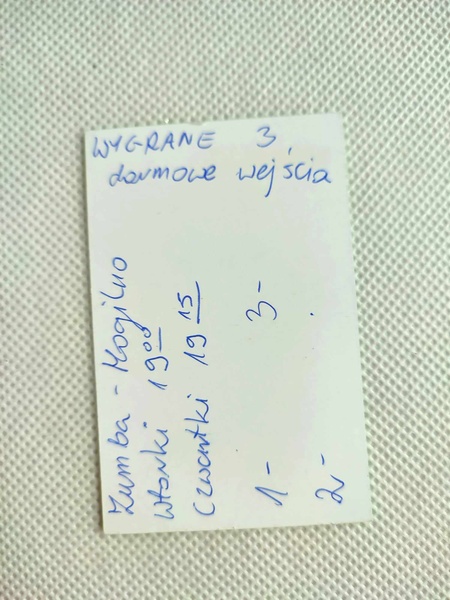 WYGRANE 3
darmowe wejścia
Zumba - Mogilno
Wtorki 19 00
Czwartki 19 15
1- 3-
2-